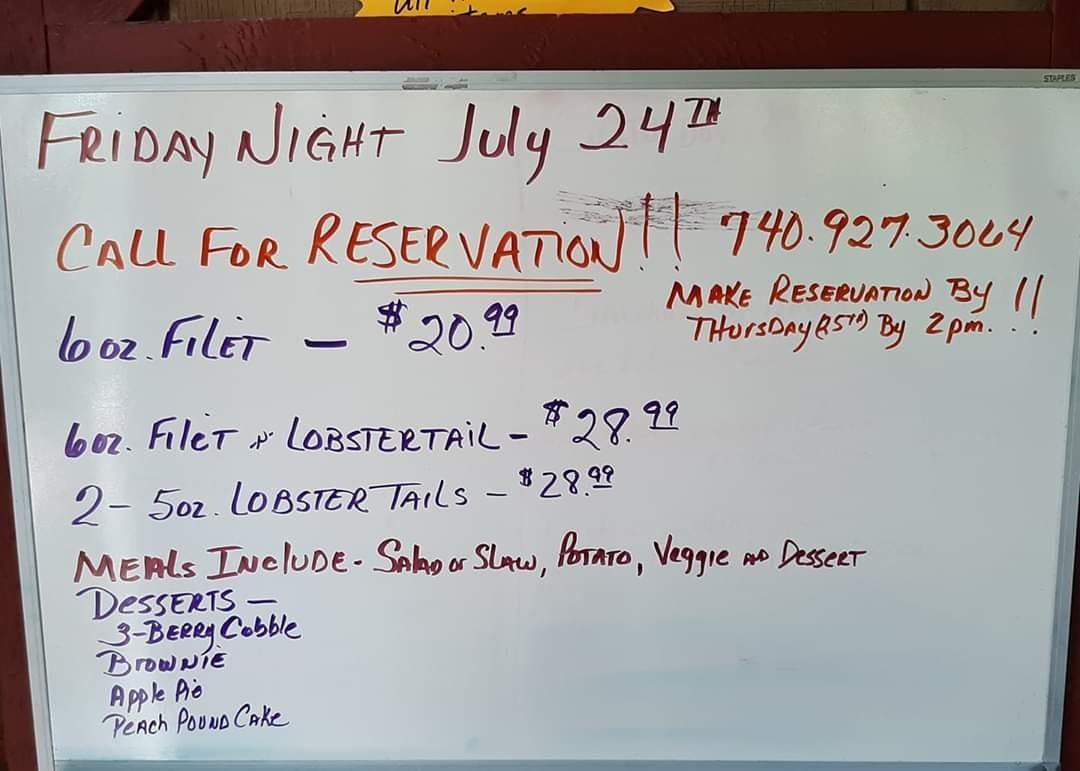 all
items
STAPLES
FRIDAY NIGHT July 24TH
CALL FOR RESERVATION!!! 740.927.3064
MAKE RESERVATION By !!
THURSDAY By 2pm. !!
6 oz. FILET - $20.99
6oz. FILET N LOBSTERTAIL - $28.99
2- 5oz. LOBSTER TAILS - $28.99
MEALS INCLUDE - SALAD or SLAW, POTATO, Veggie AND DESSERT
DESSERTS -
3-BERRy Cobble
BROWNIE
Apple Pie
PEACh POUND CAKE